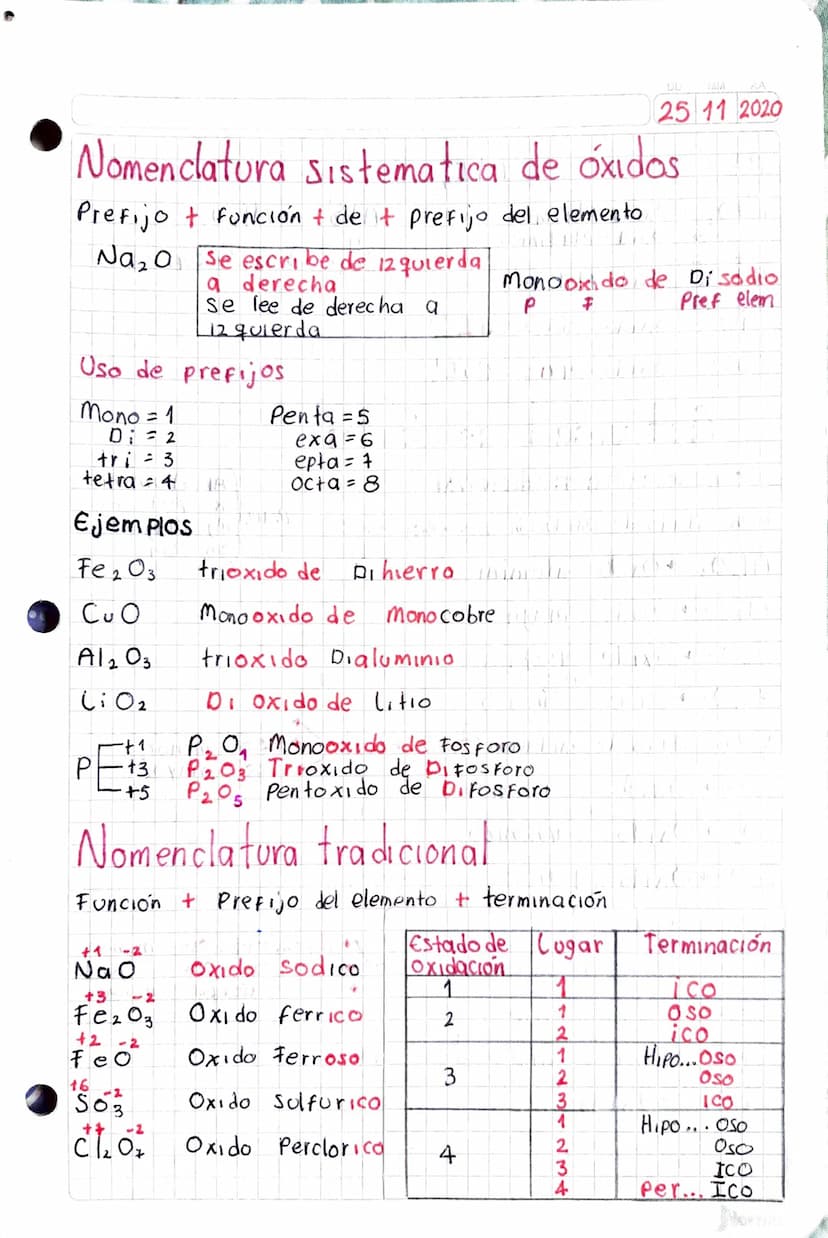 25 11 2020
Nomenclatura sistematica de óxidos
Prefijo + función + de + prefijo del elemento
Na₂O
Se escribe de izquierda
a derecha
se lee de derecha a
izquierda
Monooxido de Disodio
P F Pref elem
Uso de prefijos
Mono = 1 Penta = 5
Di = 2 exa = 6
tri = 3 epta = 7
tetra = 4 octa = 8
Ejemplos
Fe₂O₃ trioxido de Dihierro
CuO Monooxido de monocobre
Al₂O₃ trioxido Dialuminio
LiO₂ Di oxido de litio
P +1 P₂O₁ Monooxido de fosforo
+3 P₂O₃ Trioxido de Difosforo
+5 P₂O₅ Pentoxido de Difosforo
Nomenclatura tradicional
Función + Prefijo del elemento + terminación
+1 -2
NaO Oxido sodico
+3 -2
Fe₂O₃ Oxido ferrico
+2 -2
FeO Oxido ferroso
16 -2
SO₃ Oxido sulfurico
+7 -2
Cl₂O₇ Oxido Perclorico
Estado de oxidación Lugar Terminación
1 1 ico
2 1 oso
2 ico
3 1 Hipo...oso
2 oso
3 ico
4 1 Hipo... oso
2 oso
3 ICO
4 Per... Ico